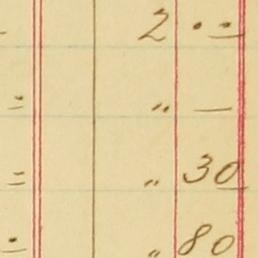 2 • =
= „ —
= „ 30
= „ 80